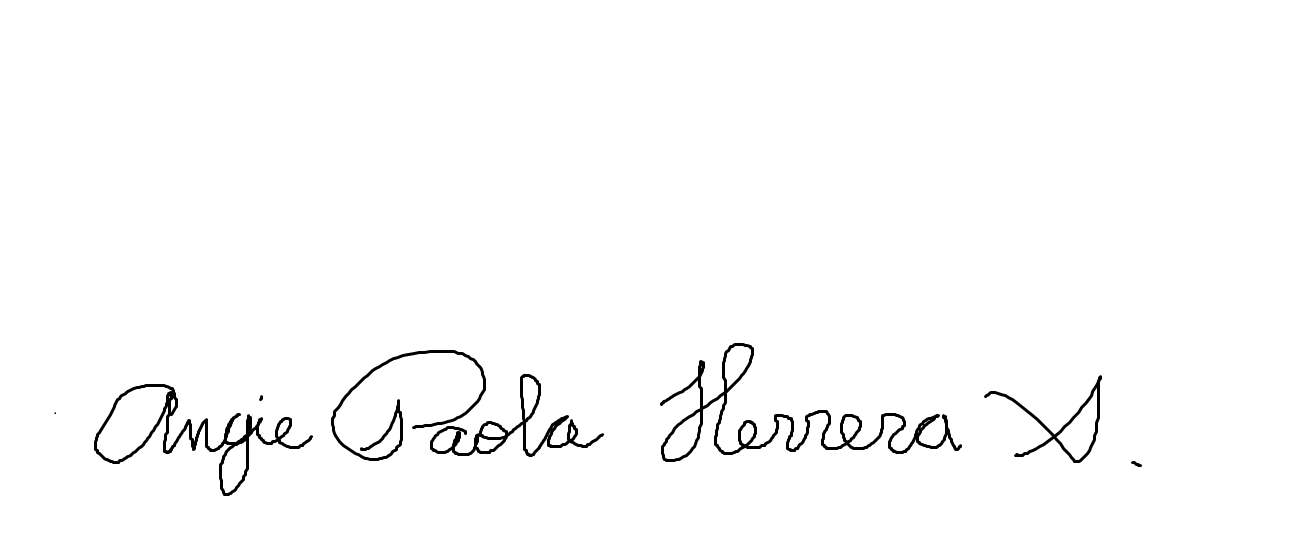 Angie Paola Herrera S.